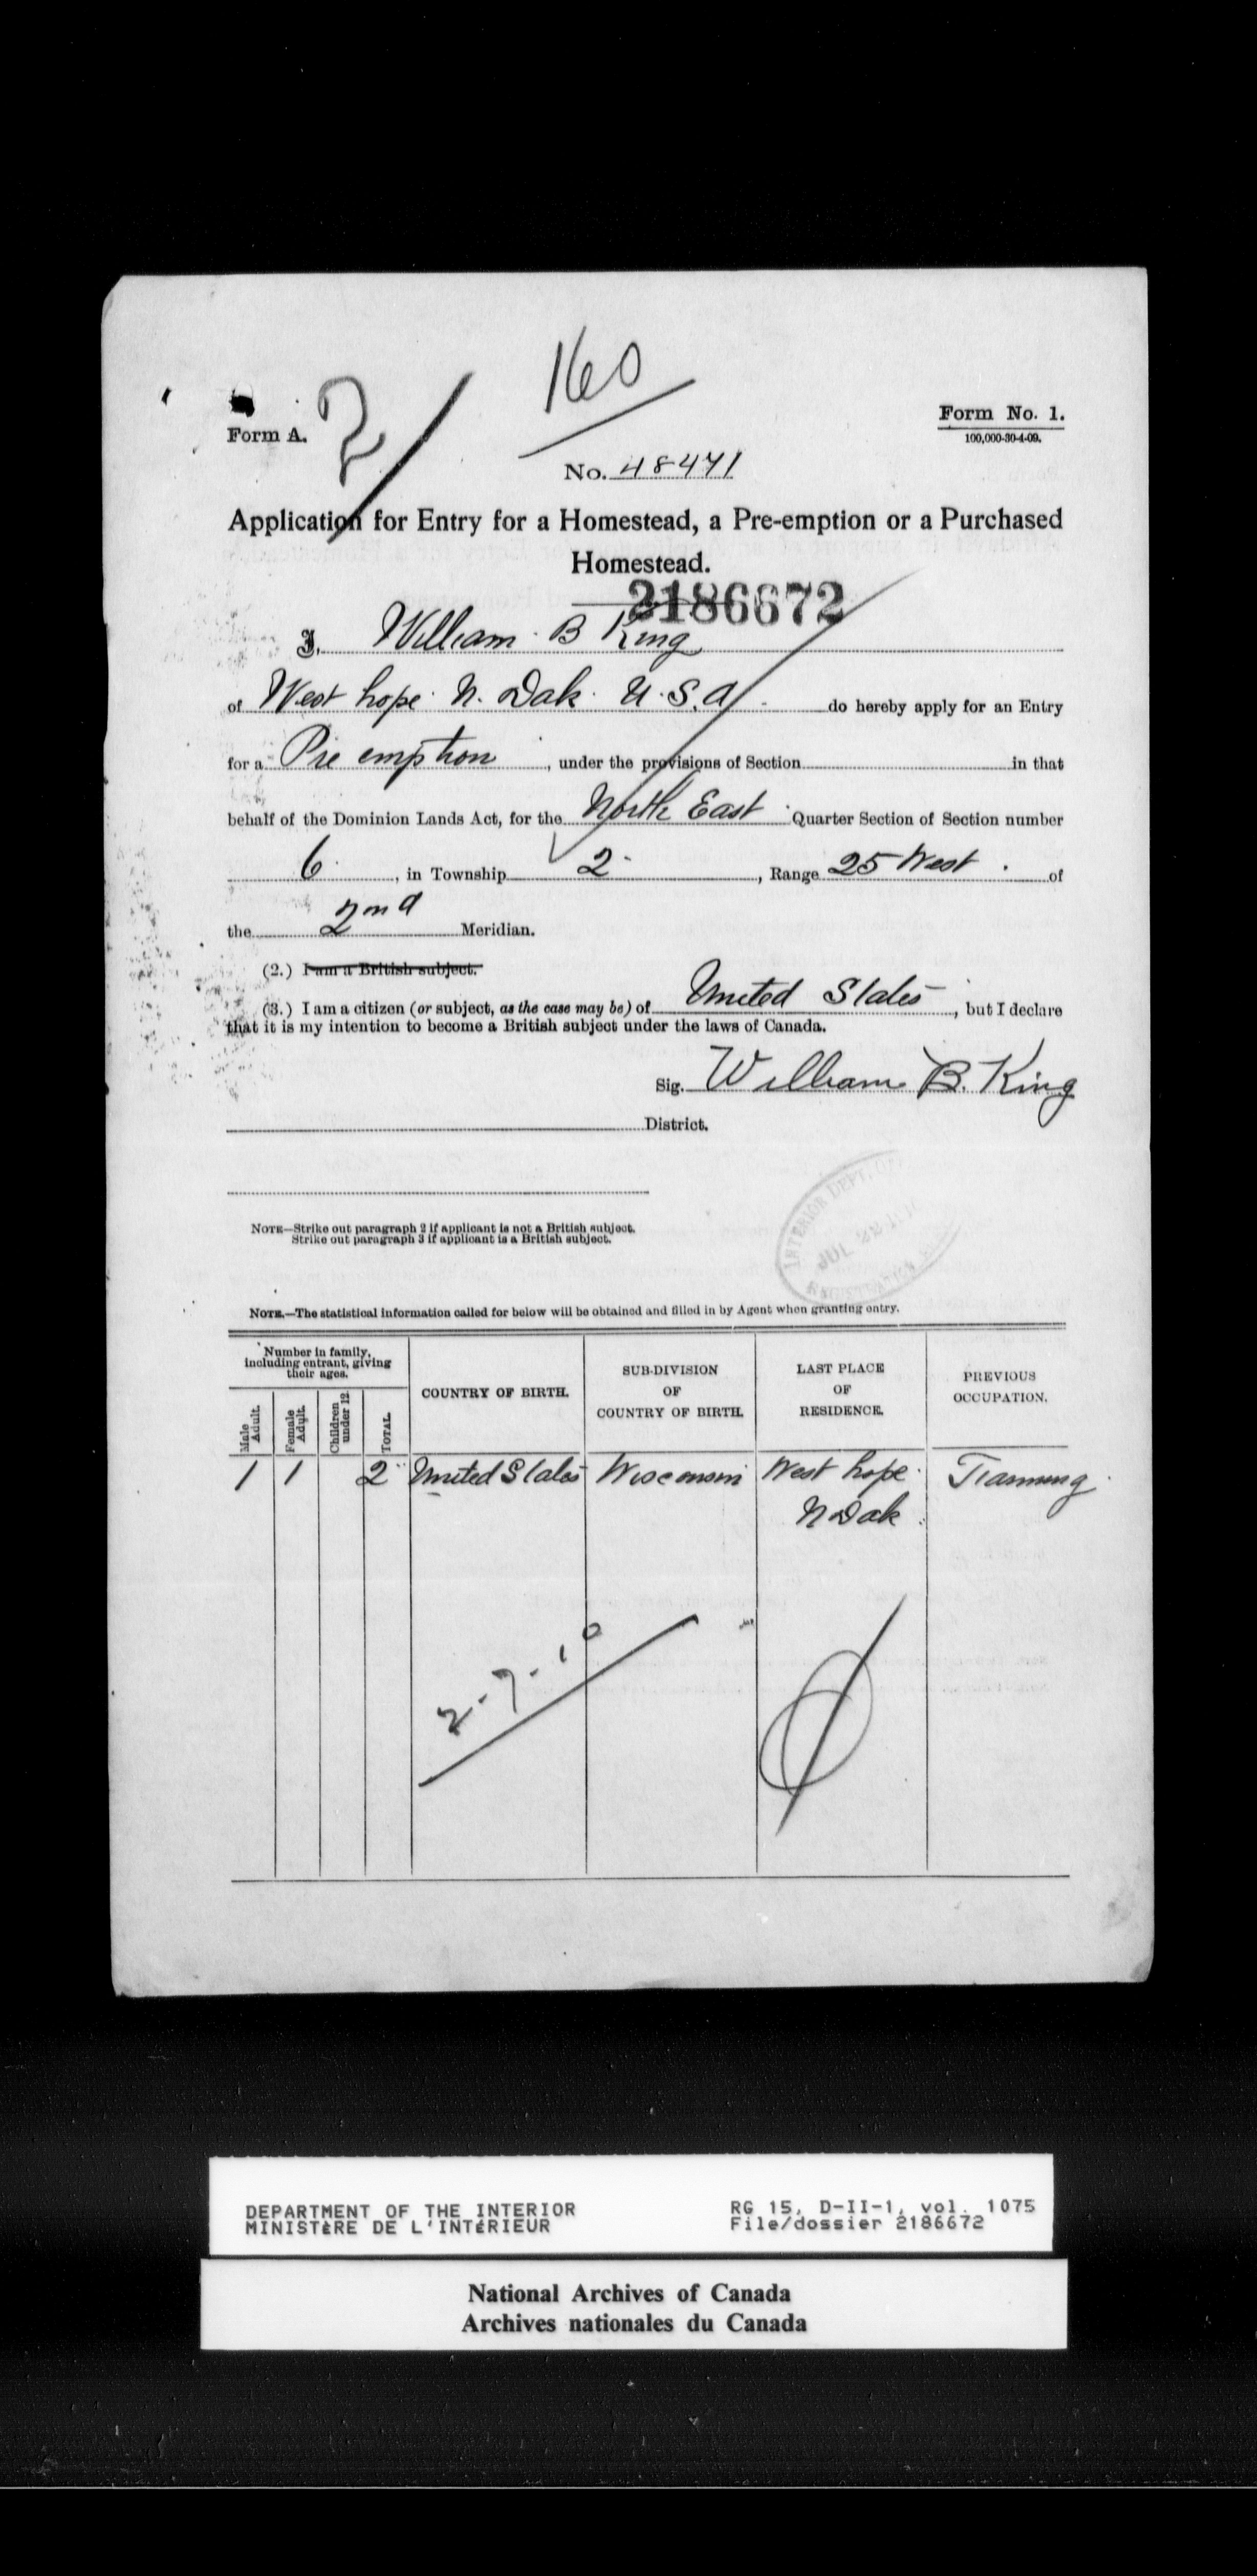 160
2
Form A.
Form No. 1.
100,000-30-4-09.
No. 48471
Application for Entry for a Homestead, a Pre-emption or a Purchased
Homestead.
2186672
I, William B King
of West hope N. Dak. U.S.A. do hereby apply for an Entry
for a Pre emption, under the provisions of Section in that
behalf of the Dominion Lands Act, for the North East Quarter Section of Section number
6, in Township 2, Range 25 West of
the 2nd Meridian.
(2.) I am a British subject.
(3.) I am a citizen (or subject, as the case may be) of United States, but I declare
that it is my intention to become a British subject under the laws of Canada.
Sig. William B. King
District.
INTERIOR DEPT. OTT
JUL 22
REGISTRATION
NOTE—Strike out paragraph 2 if applicant is not a British subject.
Strike out paragraph 3 if applicant is a British subject.
NOTE.—The statistical information called for below will be obtained and filled in by Agent when granting entry.
Number in family, including entrant, giving their ages.
Male Adult.
Female Adult.
Children under 12
TOTAL.
COUNTRY OF BIRTH.
SUB-DIVISION OF COUNTRY OF BIRTH.
LAST PLACE OF RESIDENCE.
PREVIOUS OCCUPATION.
1 1 2 United States Wisconsin West hope
N Dak
2-7-10
DEPARTMENT OF THE INTERIOR
MINISTÈRE DE L'INTÉRIEUR
RG 15, D-II-1, vol. 1075
File/dossier 2186672
National Archives of Canada
Archives nationales du Canada